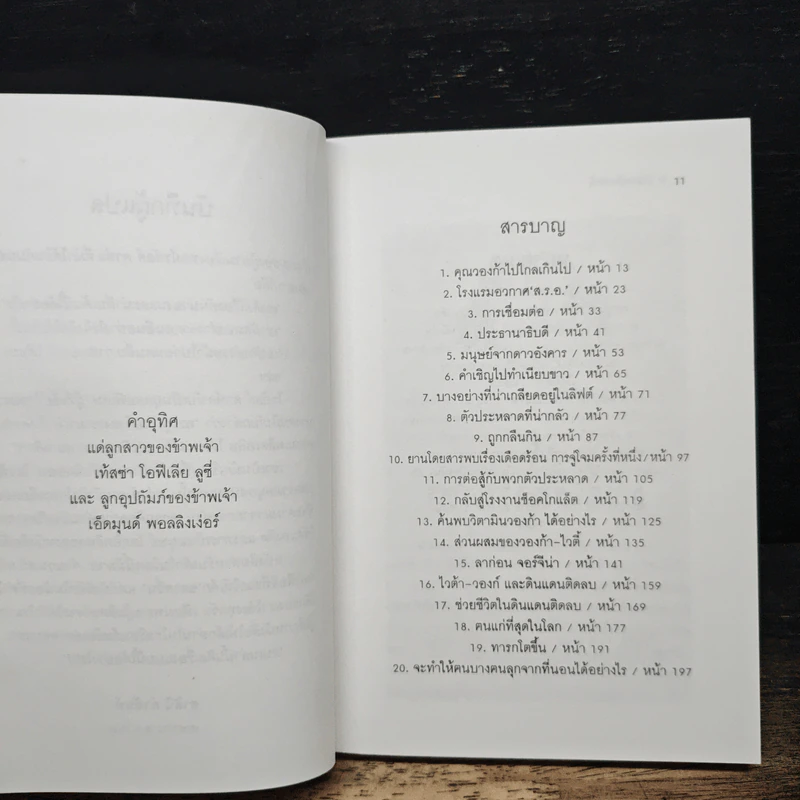 คำอุทิศ
แด่ลูกสาวของข้าพเจ้า
เท้สซ่า โอฟีเลีย ลูซี่
และ ลูกอุปถัมภ์ของข้าพเจ้า
เอ็ดมุนด์ พอลลิงเง่อร์
11
สารบาญ
1. คุณวองก้าไปไกลเกินไป / หน้า 13
2. โรงแรมอวกาศ'ส.ร.อ.' / หน้า 23
3. การเชื่อมต่อ / หน้า 33
4. ประธานาธิบดี / หน้า 41
5. มนุษย์จากดาวอังคาร / หน้า 53
6. คำเชิญไปทำเนียบขาว / หน้า 65
7. บางอย่างที่น่าเกลียดอยู่ในลิฟต์ / หน้า 71
8. ตัวประหลาดที่น่ากลัว / หน้า 77
9. ถูกกลืนกิน / หน้า 87
10. ยานโดยสารพบเรื่องเดือดร้อน การจู่โจมครั้งที่หนึ่ง/หน้า 97
11. การต่อสู้กับพวกตัวประหลาด / หน้า 105
12. กลับสู่โรงงานช็อคโกแล็ต / หน้า 119
13. ค้นพบวิตามินวองก้า ได้อย่างไร / หน้า 125
14. ส่วนผสมของวองก้า-ไวตี้ / หน้า 135
15. ลาก่อน จอร์จีน่า / หน้า 141
16. ไวต้า-วองก์ และดินแดนติดลบ / หน้า 159
17. ช่วยชีวิตในดินแดนติดลบ / หน้า 169
18. คนแก่ที่สุดในโลก / หน้า 177
19. ทารกโตขึ้น / หน้า 191
20. จะทำให้คนบางคนลุกจากที่นอนได้อย่างไร / หน้า 197